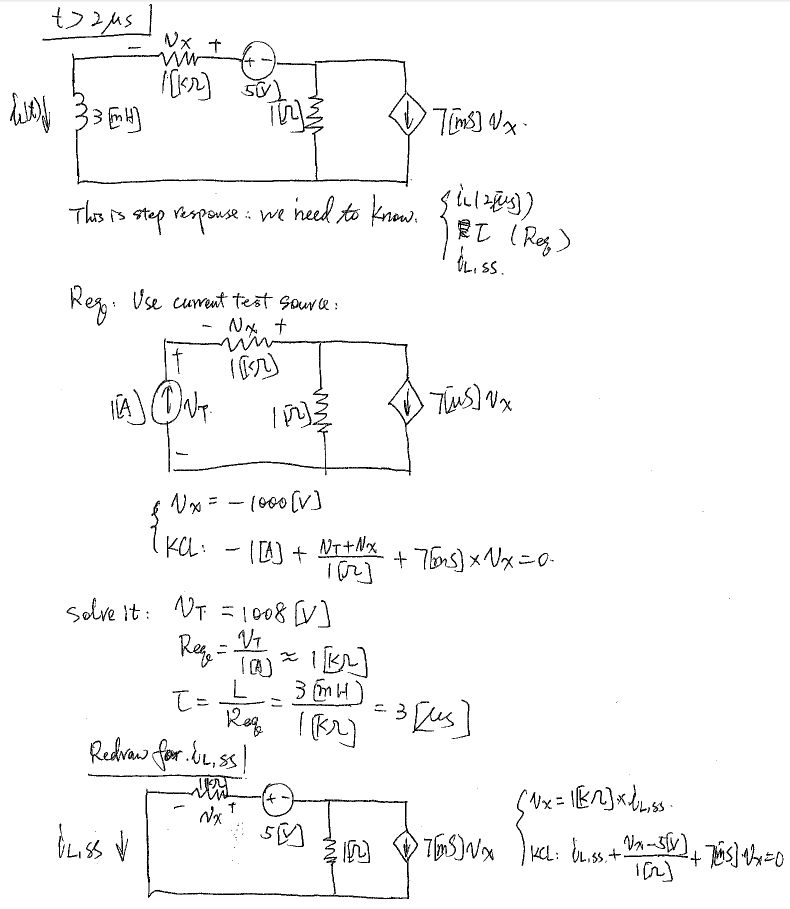 t > 2 μs
− Vx +
1[kΩ]
5[V]
iL(t)↓
3[mH]
1[Ω]
7[mS] Vx.
This is step response: we need to know.
{ iL(2[μs])
τ (Req)
iL,ss.
Req: Use current test source:
− Vx +
1[kΩ]
1[A]
+
VT
−
1[Ω]
7[mS] Vx
{ Vx = −1000[V]
KCL: −1[A] + (VT+Vx)/1[Ω] + 7[mS] × Vx = 0.
Solve it: VT = 1008[V]
Req = VT/1[A] ≈ 1[kΩ]
τ = L/Req = 3[mH]/1[kΩ] = 3[μs]
Redraw for iL,ss
1[kΩ]
− Vx +
+ −
5[V]
iL,ss ↓
1[Ω]
7[mS] Vx
{ Vx = 1[kΩ] × iL,ss.
KCL: iL,ss + (Vx−5[V])/1[Ω] + 7[mS]·Vx = 0